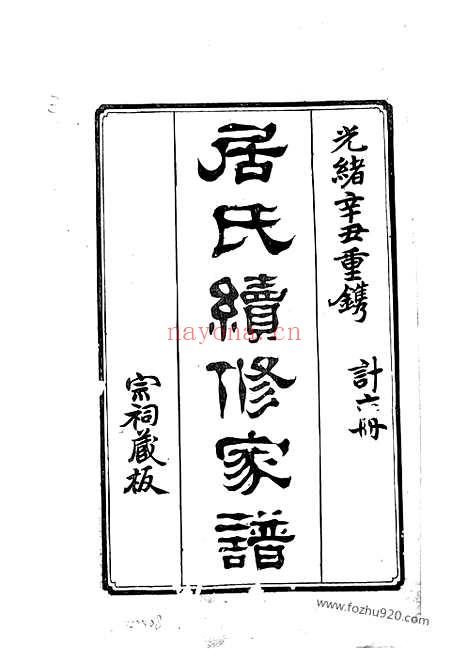 光緒辛丑重鐫　計六冊
居氏續修家譜
宗祠藏板
nayona.cn
www.fozhu920.com